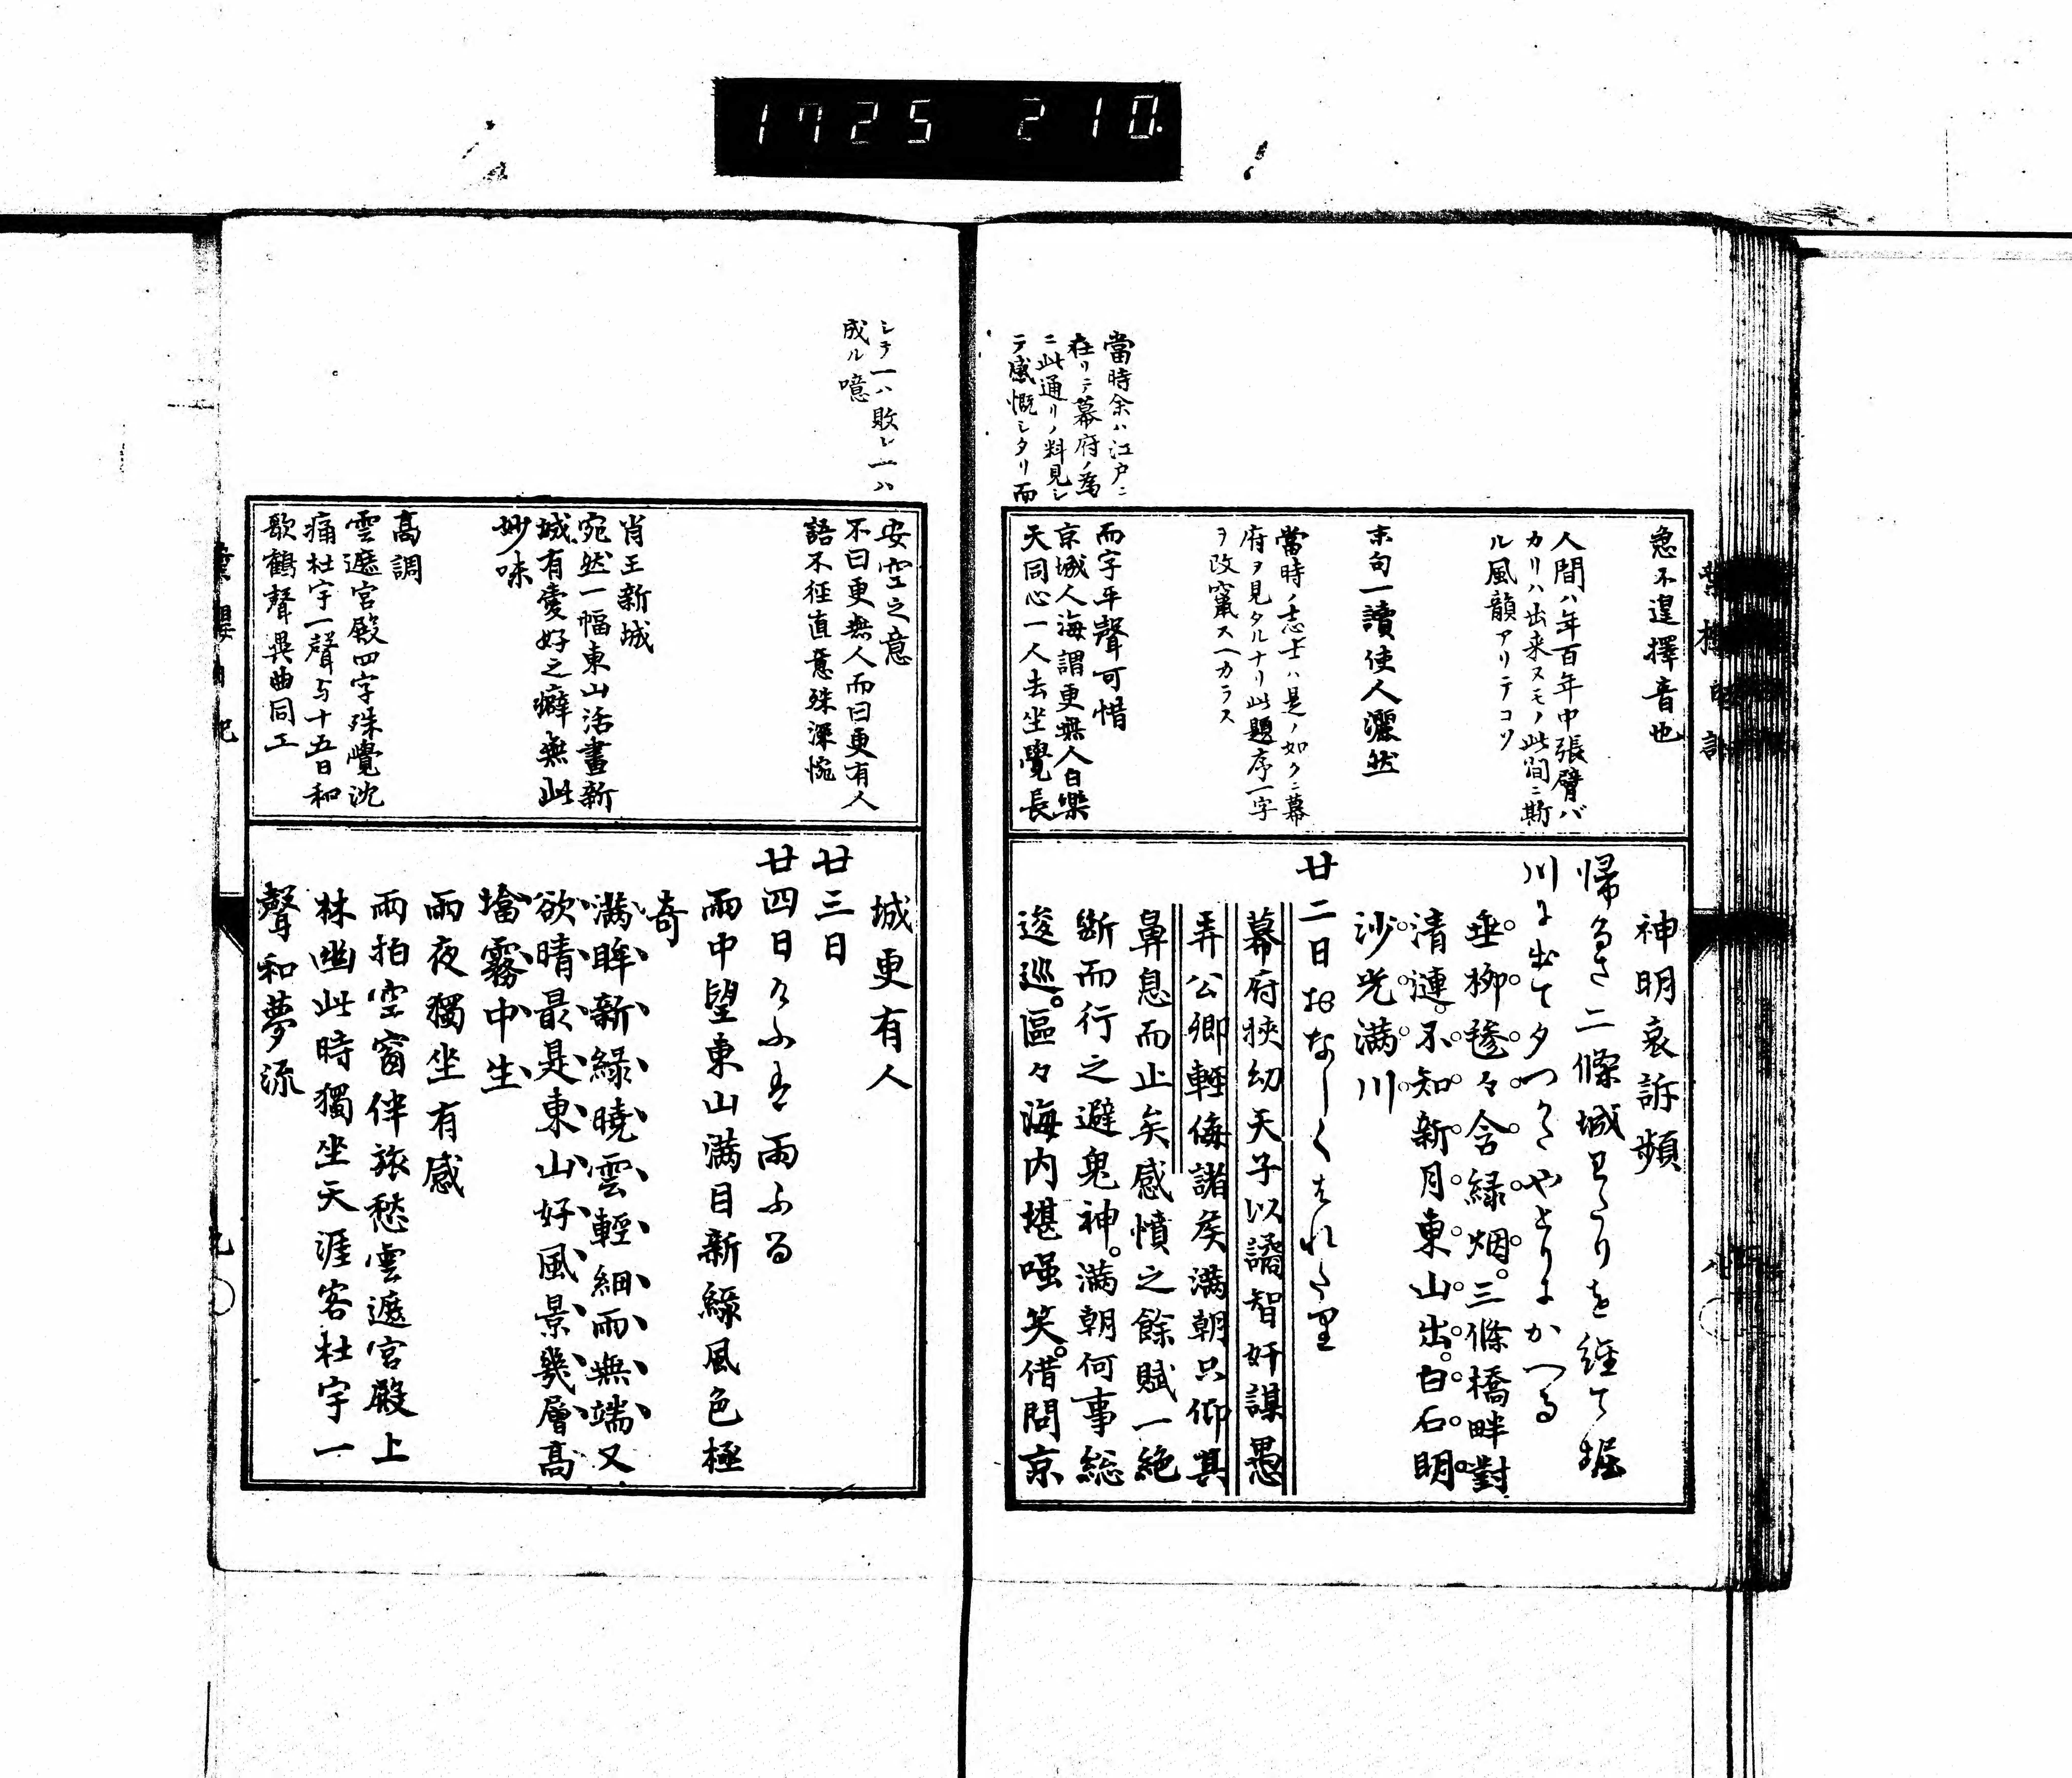 1725 210.
當時余ハ江戸ニ
在リテ幕府ノ為
ニ此通リノ料見シ
テ感慨シタリ而
急不遑擇音也
人間ハ年百年中張臂バ
カリハ出来ヌモノ此間ニ斯
ル風韻アリテコソ
末句一讀使人灑然
當時ノ志士ハ是ノ如クニ幕
府ヲ見タルナリ此題序一字
ヲ改竄スヘカラス
而字平聲可惜
京城人海謂更無人白樂
天同心一人去坐覺長
神明哀訴頻
帰るさ二條城わたりを経て堀
川に出て夕つきやとりにかへる
垂柳毿々含緑烟三條橋畔對
清漣不知新月東山出白石明
沙光満川
廿二日おなしくはれたり
幕府狹幼天子以譎智奸謀愚
弄公卿輕侮諸矦満朝只仰其
鼻息而止矣感憤之餘賦一絶
断而行之避鬼神満朝何事総
逡巡區々海内堪嗤笑借問京
シテ一ハ敗レ一ハ
成ル噫
安空之意
不曰更無人而曰更有人
語不徑直意殊深惋
肖王新城
宛然一幅東山活畫新
城有愛好之癖無此
妙味
高調
雲遮宮殿四字殊覺沈
痛杜宇一聲与十五日和
歌鶴聲異曲同工
城更有人
廿三日
廿四日けふも雨ふる
雨中望東山満目新緑風色極
奇
満眸新緑曉雲輕細雨無端又
欲晴最是東山好風景幾層高
塔霧中生
雨夜獨坐有感
雨拍空窗伴旅愁雲遮宮殿上
林幽此時獨坐天涯客杜宇一
聲和夢流